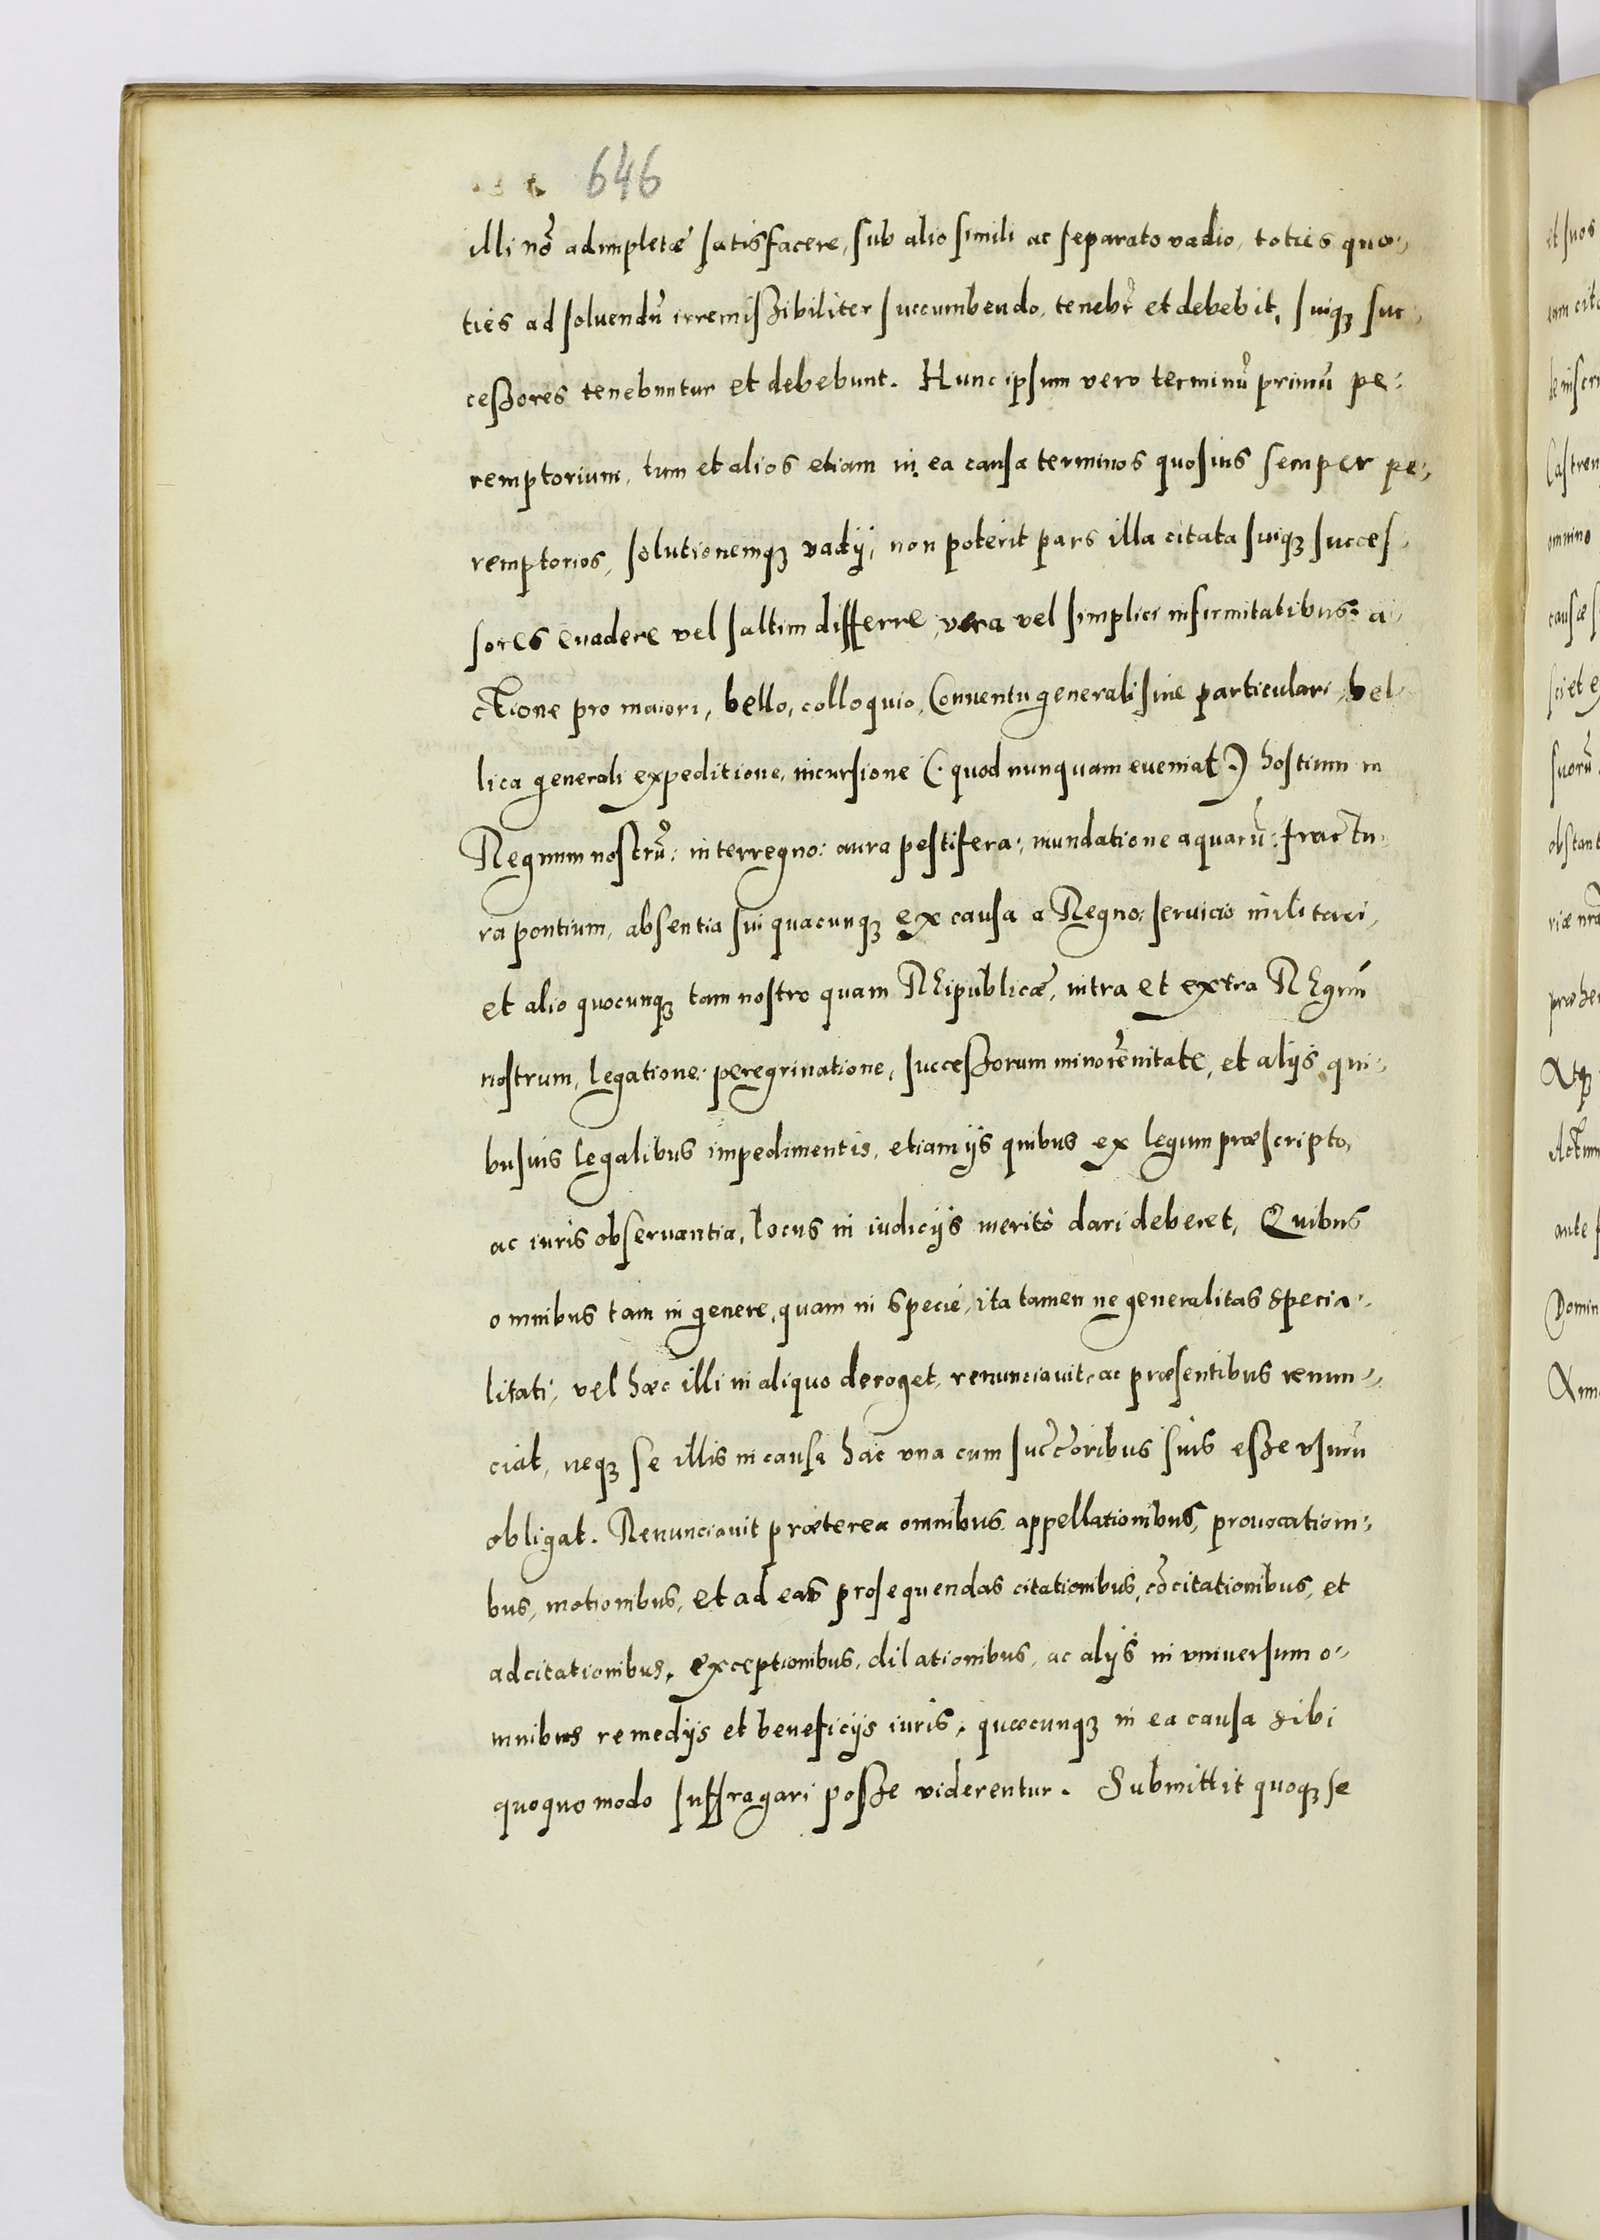 646
illi nō adimpletæ satisfacere, sub alio simili ac separato vadio, toties quo-
ties ad soluendū irremissibiliter succumbendo, tenebr̃ et debebit, suiqꝫ suc-
cessores tenebuntur et debebunt. Hunc ipsum vero terminū primū pe-
remptorium, tum et alios etiam in ea causa terminos quosuis semper pe-
remptorios, solutionemqꝫ vadÿ, non poterit pars illa citata suiqꝫ succes-
sores euadere vel saltim differre, vera vel simplici infirmitatibus: a-
ctione pro maiori, bello, colloquio, Conuentu generali siue particulari, bel-
lica generali expeditione, incursione (. quod nunquam eueniat .) hostium in
Regnum nostrū: interregno: aura pestifera: inundatione aquarū: fractu-
ra pontium, absentia sui quacunqꝫ ex causa a Regno: seruicio militari,
et alio quocunqꝫ tam nostro quam Reipublicæ, intra et extra Regnū
nostrum, legatione: peregrinatione, successorum minorēnitate, et alÿs qui-
busuis legalibus impedimentis, etiam ÿs quibus ex legum præscripto,
ac iuris obseruantia, locus in iudicÿs meritò dari deberet, Quibus
omnibus tam in genere, quam in specie, ita tamen ne generalitas specia-
litati, vel hæc illi in aliquo deroget, renunciauit, ac præsentibus renun-
ciat, neqꝫ se illis in causa hac vna cum succ̃oribus suis esse vsurū
obligat. Renunciauit præterea omnibus appellationibus, prouocationi-
bus, motionibus, et ad eas prosequendas citationibus, cōcitationibus, et
adcitationibus, exceptionibus, dilationibus, ac alÿs in vniuersum o-
mnibus remedÿs et beneficÿs iuris, quæcunqꝫ in ea causa sibi
quoquo modo suffragari posse viderentur. Submittit quoqꝫ se
et suos
causæ
omnino
sci et
suorū
obstant
Actum
ante
Domin